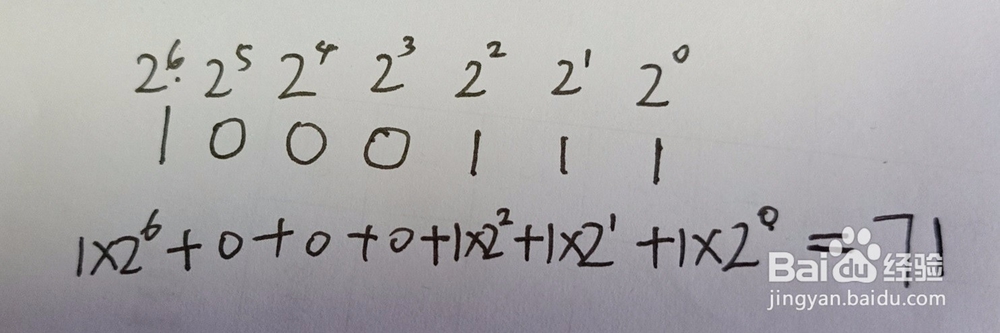 2⁶ 2⁵ 2⁴ 2³ 2² 2¹ 2⁰
1 0 0 0 1 1 1
1×2⁶+0+0+0+1×2²+1×2¹+1×2⁰=71
Baidu经验
jingyan.baidu.com